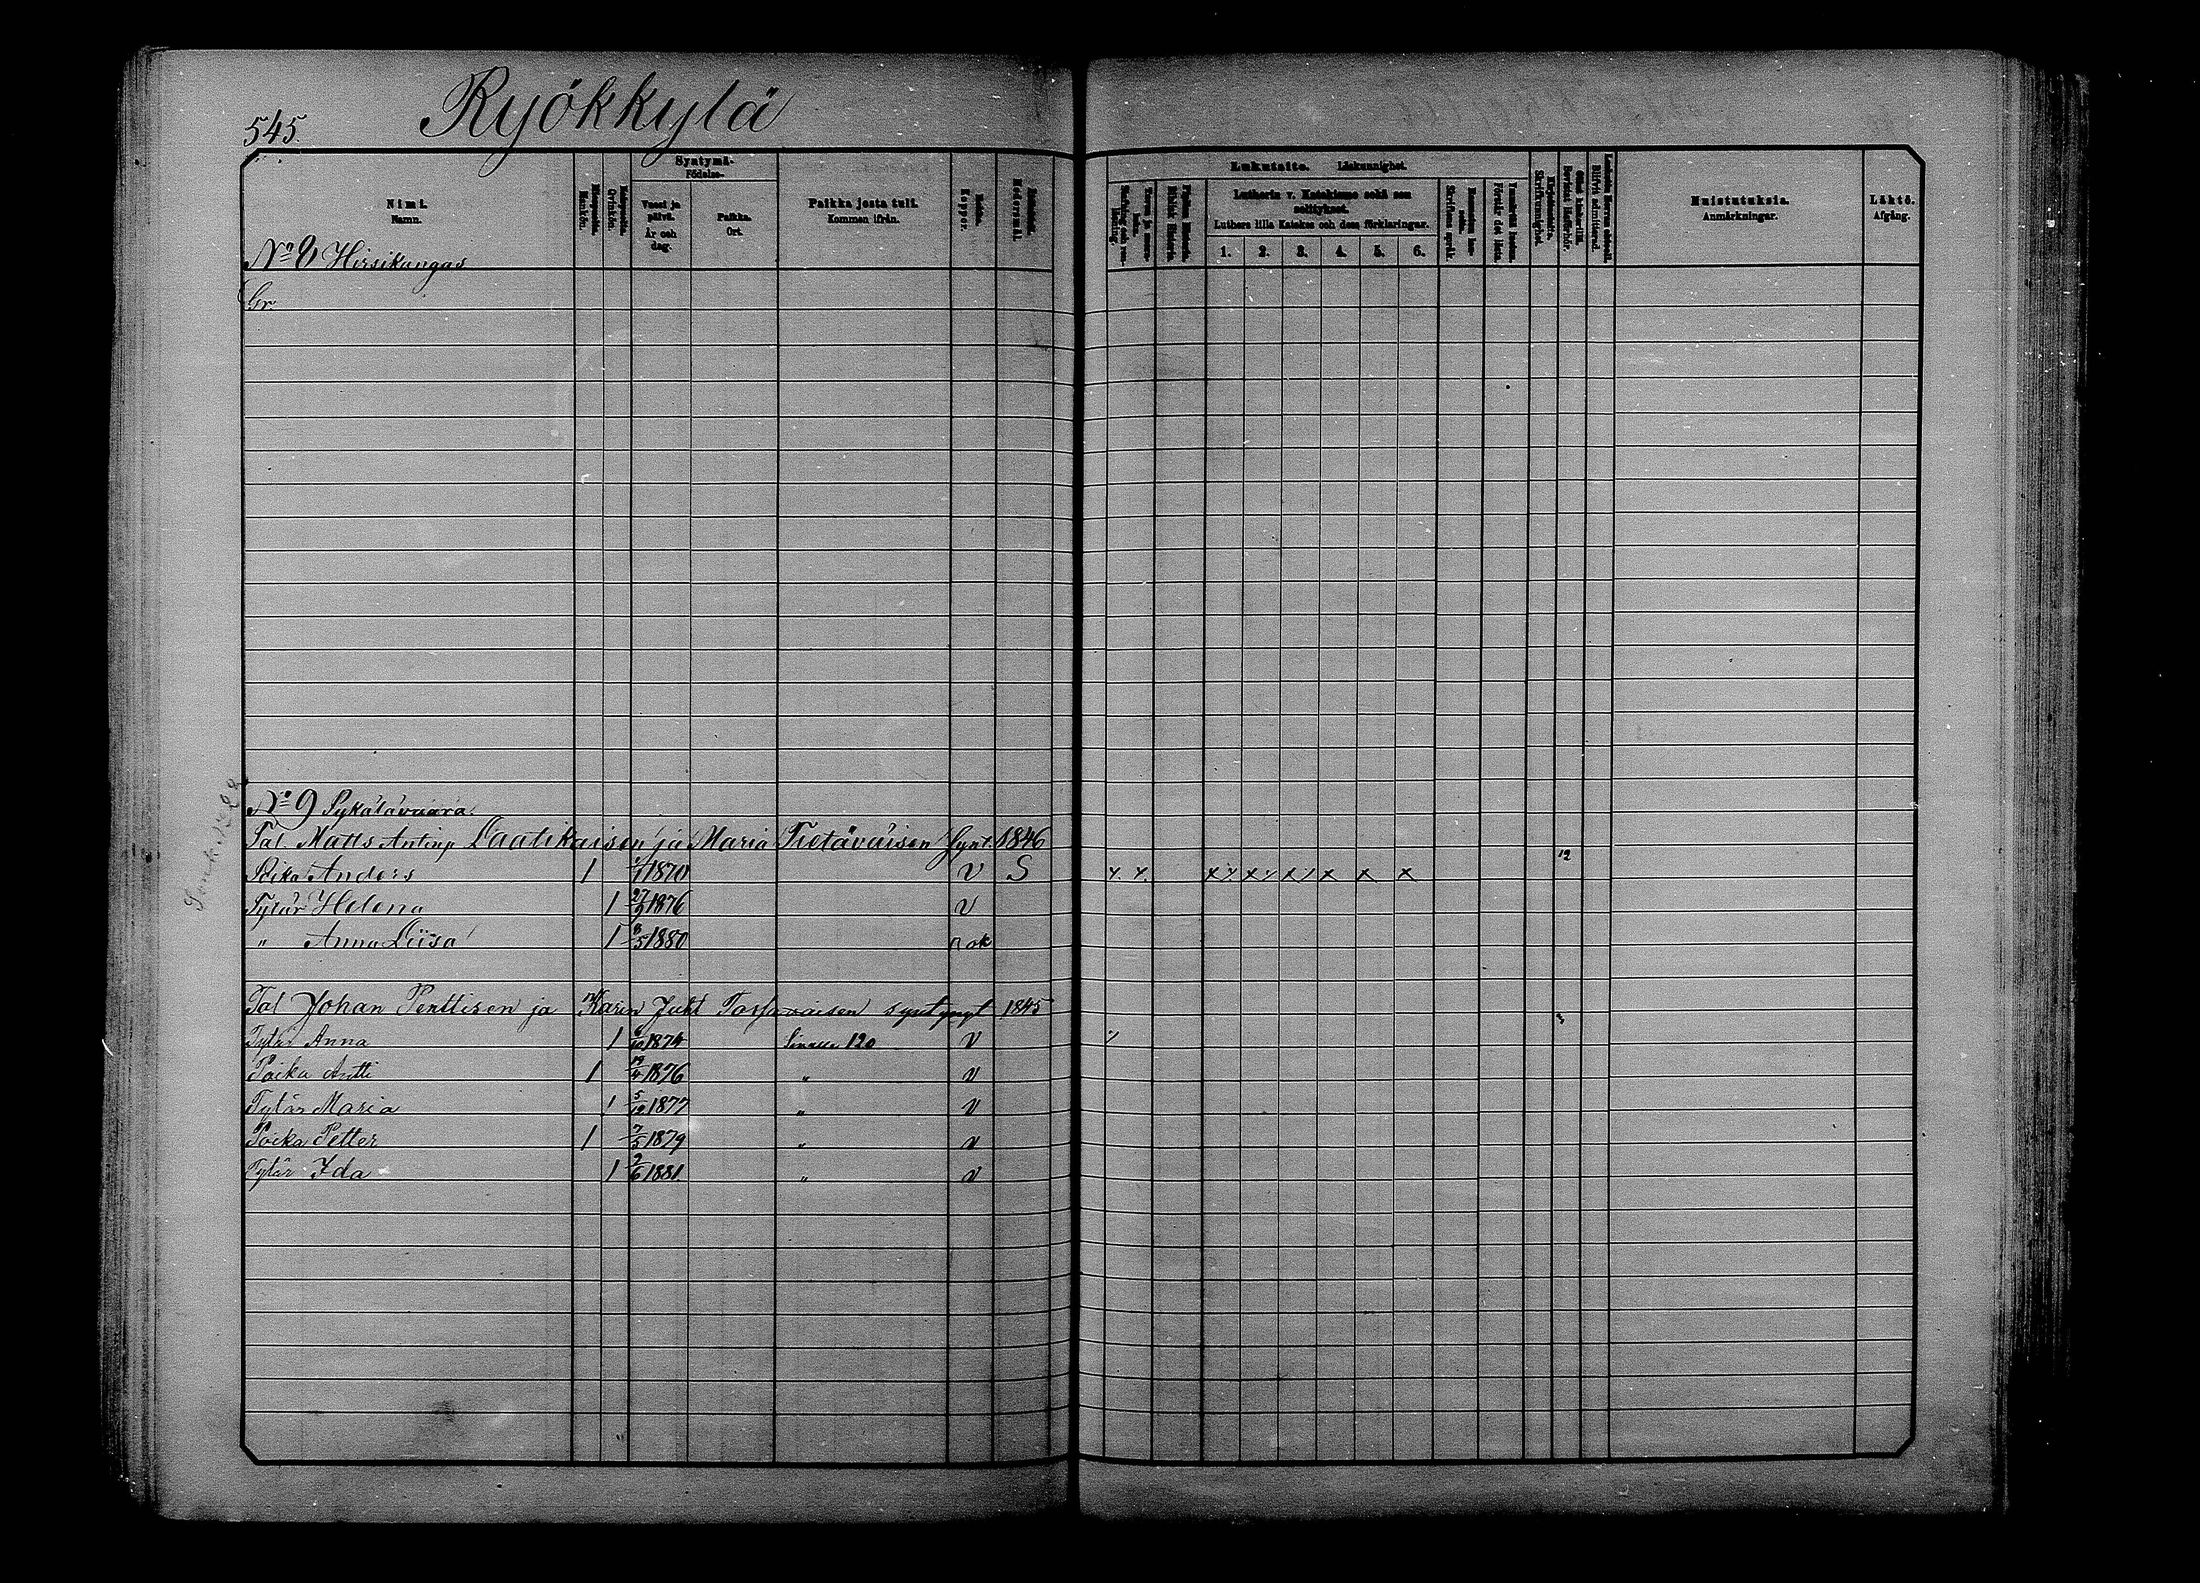 545.
Ryökkylä
Nimi.
Namn.
Miespuolta.
Mankön.
Vaimopuolta.
Qvinkön.
Syntymä-
Födelse-
Vuosi ja
päivä.
År och
dag.
Paikka.
Ort.
Paikka josta tuli.
Kommen ifrån.
Rokko.
Koppor.
Lukutaito. Läskunnighet.
Lutherin v. Katekismo sekä sen
selitykset.
Luthers lilla Katekes och dess förklaringar.
1. 2. 3. 4. 5. 6.
Muistutuksia.
Anmärkningar.
Lähtö.
Afgång.
No 8 Hirsikangas
Gr.
No 9 Sykälävaara.
Tal. Matts Antinp Laatikaisen ja Maria Tietäväisen Synt. 1846
Poika Anders 1 1/1 1870 V S
x x x x x x
12
Tytär Helena 1 27/9 1876 V
" Anna Liisa 1 8/5 1880 Rok
Tal Johan Penttisen ja Karin Juht syntynyt 1845
Tytär Anna 1 6/10 1874 120 V
Poika Antti 1 19/4 1876 " V
Tytär Maria 1 5/12 1877 " V
Poika Petter 1 7/5 1879 " V
Tytär Ida 1 2/6 1881 " V